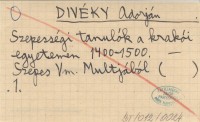 DIVÉKY Adorján
Szepességi tanulók a krakói
egyetemen 1400-1500. —
Szepes Vm. Multjából ( )
.1.